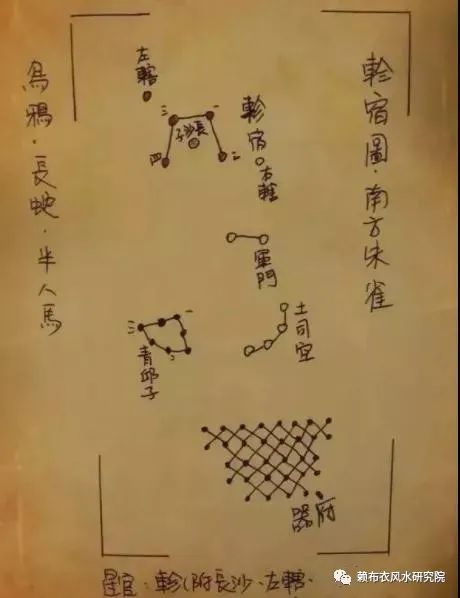 軫宿圖·南方朱雀
烏鴉·長蛇·半人馬
左轄
三
一
長沙子
四
二
軫宿
右轄
軍門
土司空
一
三
二
青邱子
器府
星官:軫(附長沙·左轄·
賴布衣风水研究院